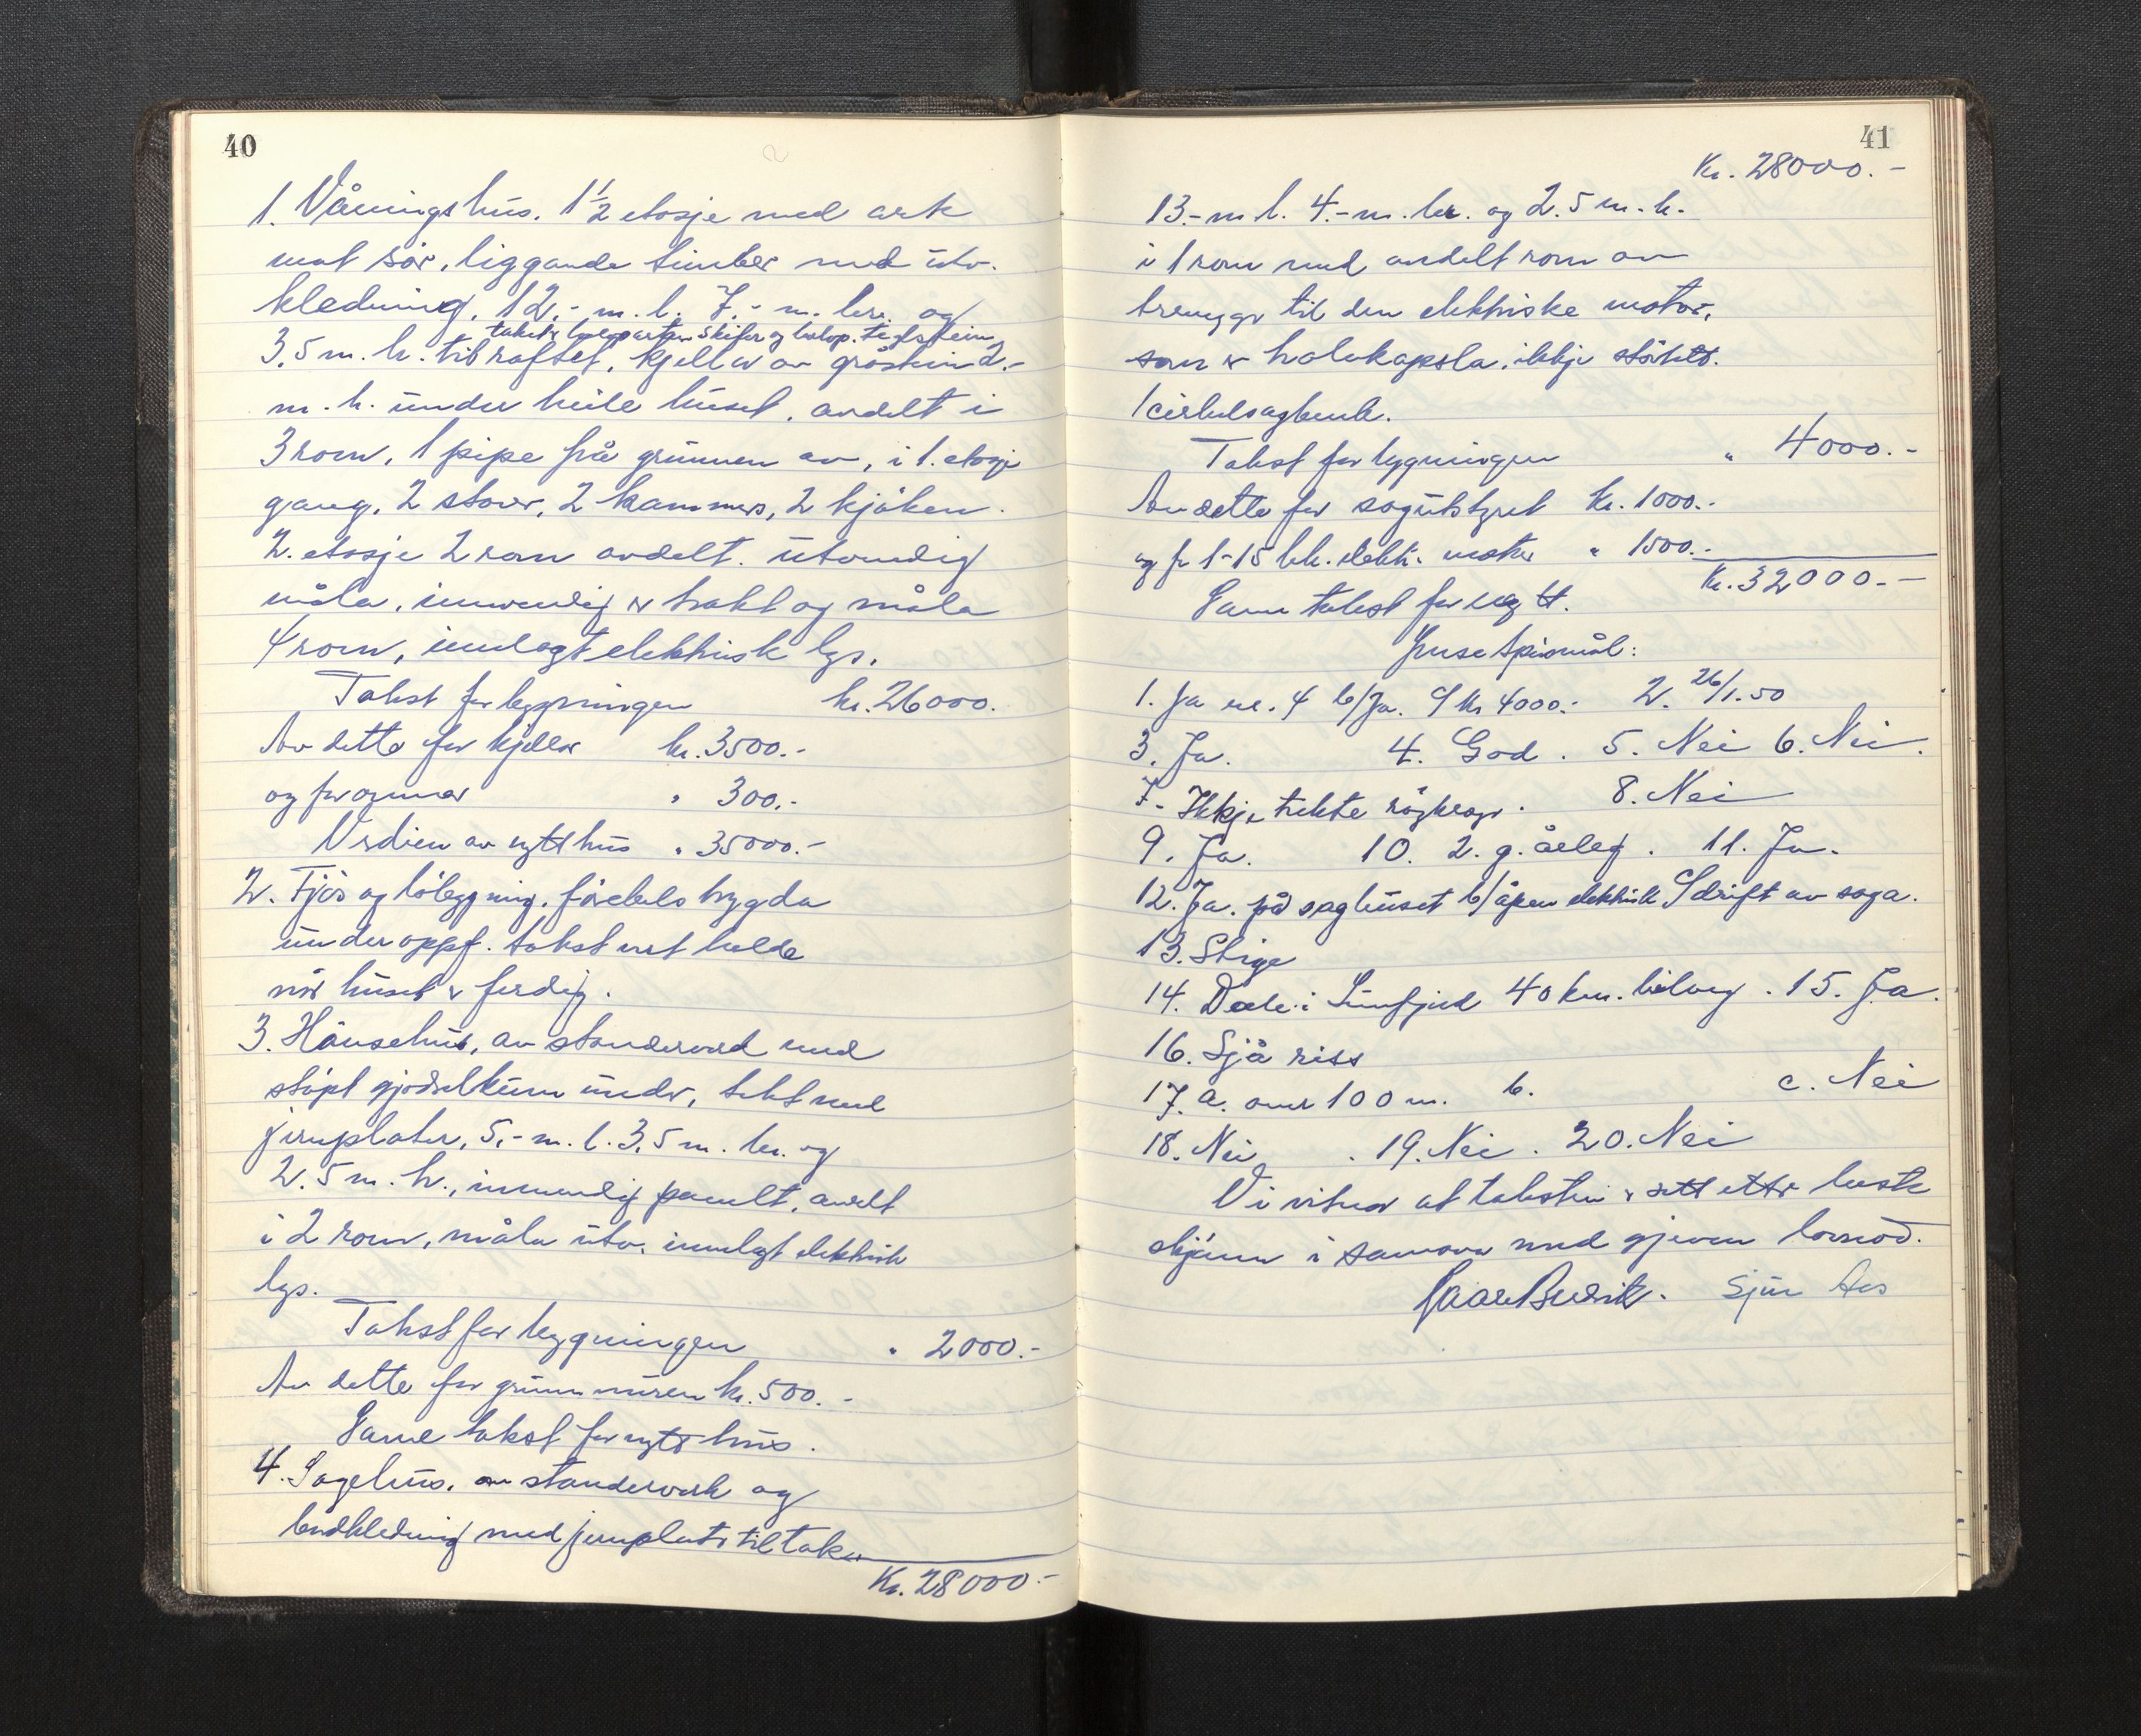 40
1. Våningshus. 1 1/2 etasje med ark
mot sør, liggande timber med utv.
kledning, 12,- m. l. 7,- m. br. og
taket er luvparten skifer og teglstein
3,5 m. h. til raftet, kjeller av gråstein 2,-
m. h. under heile huset, avdelt i
3 rom, 1 pipe frå grunnen av, i 1. etasje
gang, 2 stover, 2 kammers, 2 kjøken.
2. etasje 2 rom avdelt. utvendig
måla, innvendig er trekt og måla
4 rom, innlagt elektrisk lys.
Takst for bygningen kr. 26000.
Av dette for kjeller kr. 3500.-
og for omner " 300.-
Verdien av nytt hus " 35000.-
2. Fjøs og løbygning, førebels bygda
under oppf. takst vert halde
når huset er ferdig.
3. Hønsehus, av standerverk med
støpt gjødselkum under, tekt med
jernplater, 5,- m. l. 3,5 m. br. og
2.5 m. h., innvendig panelt, avdelt
i 2 rom, måla utv. innlagt elektrisk
lys.
Takst for bygningen " 2000.-
Av dette for grunnmuren kr. 500.-
Same takst for nytt hus.
4. Sagehus, av standerverk og
bordkledning med jernplater til tak
Kr. 28000.-
41
Kr. 28000.-
13.- m l. 4.- m. br. og 2.5 m. h.
i 1 rom med avdelt rom av
til den elektriske motor,
som er halvkapsla, ikkje støvtett.
1 cirkelsagbenk.
Takst for bygningen " 4000.-
Av dette for sagutstyret kr. 1000.-
og for 1-15 hk. elektr. motor " 1500.-
Kr. 32000.-
Same takst for nytt.
Ymse spørsmål:
1. Ja nr. 4 b/Ja. 9 kr 4000.- 2. 26/1.50
3. Ja. 4. God. 5. Nei 6. Nei.
7. Ikkje trekte røykrør. 8. Nei
9. Ja. 10. 2. g. årleg. 11. Ja.
12. Ja. på saghuset b/åpen elektrisk drift av saga.
13. Stige
14. Dale i Sunnfjord 40 km. bilveg. 15. Ja.
16. Sjå riss
17. a. over 100 m. b. c. Nei
18. Nei. 19. Nei. 20. Nei
Vi vitnar at taksten er sett etter beste
skjønn i samsvar med gjeven lovnad.
Sjur Aas